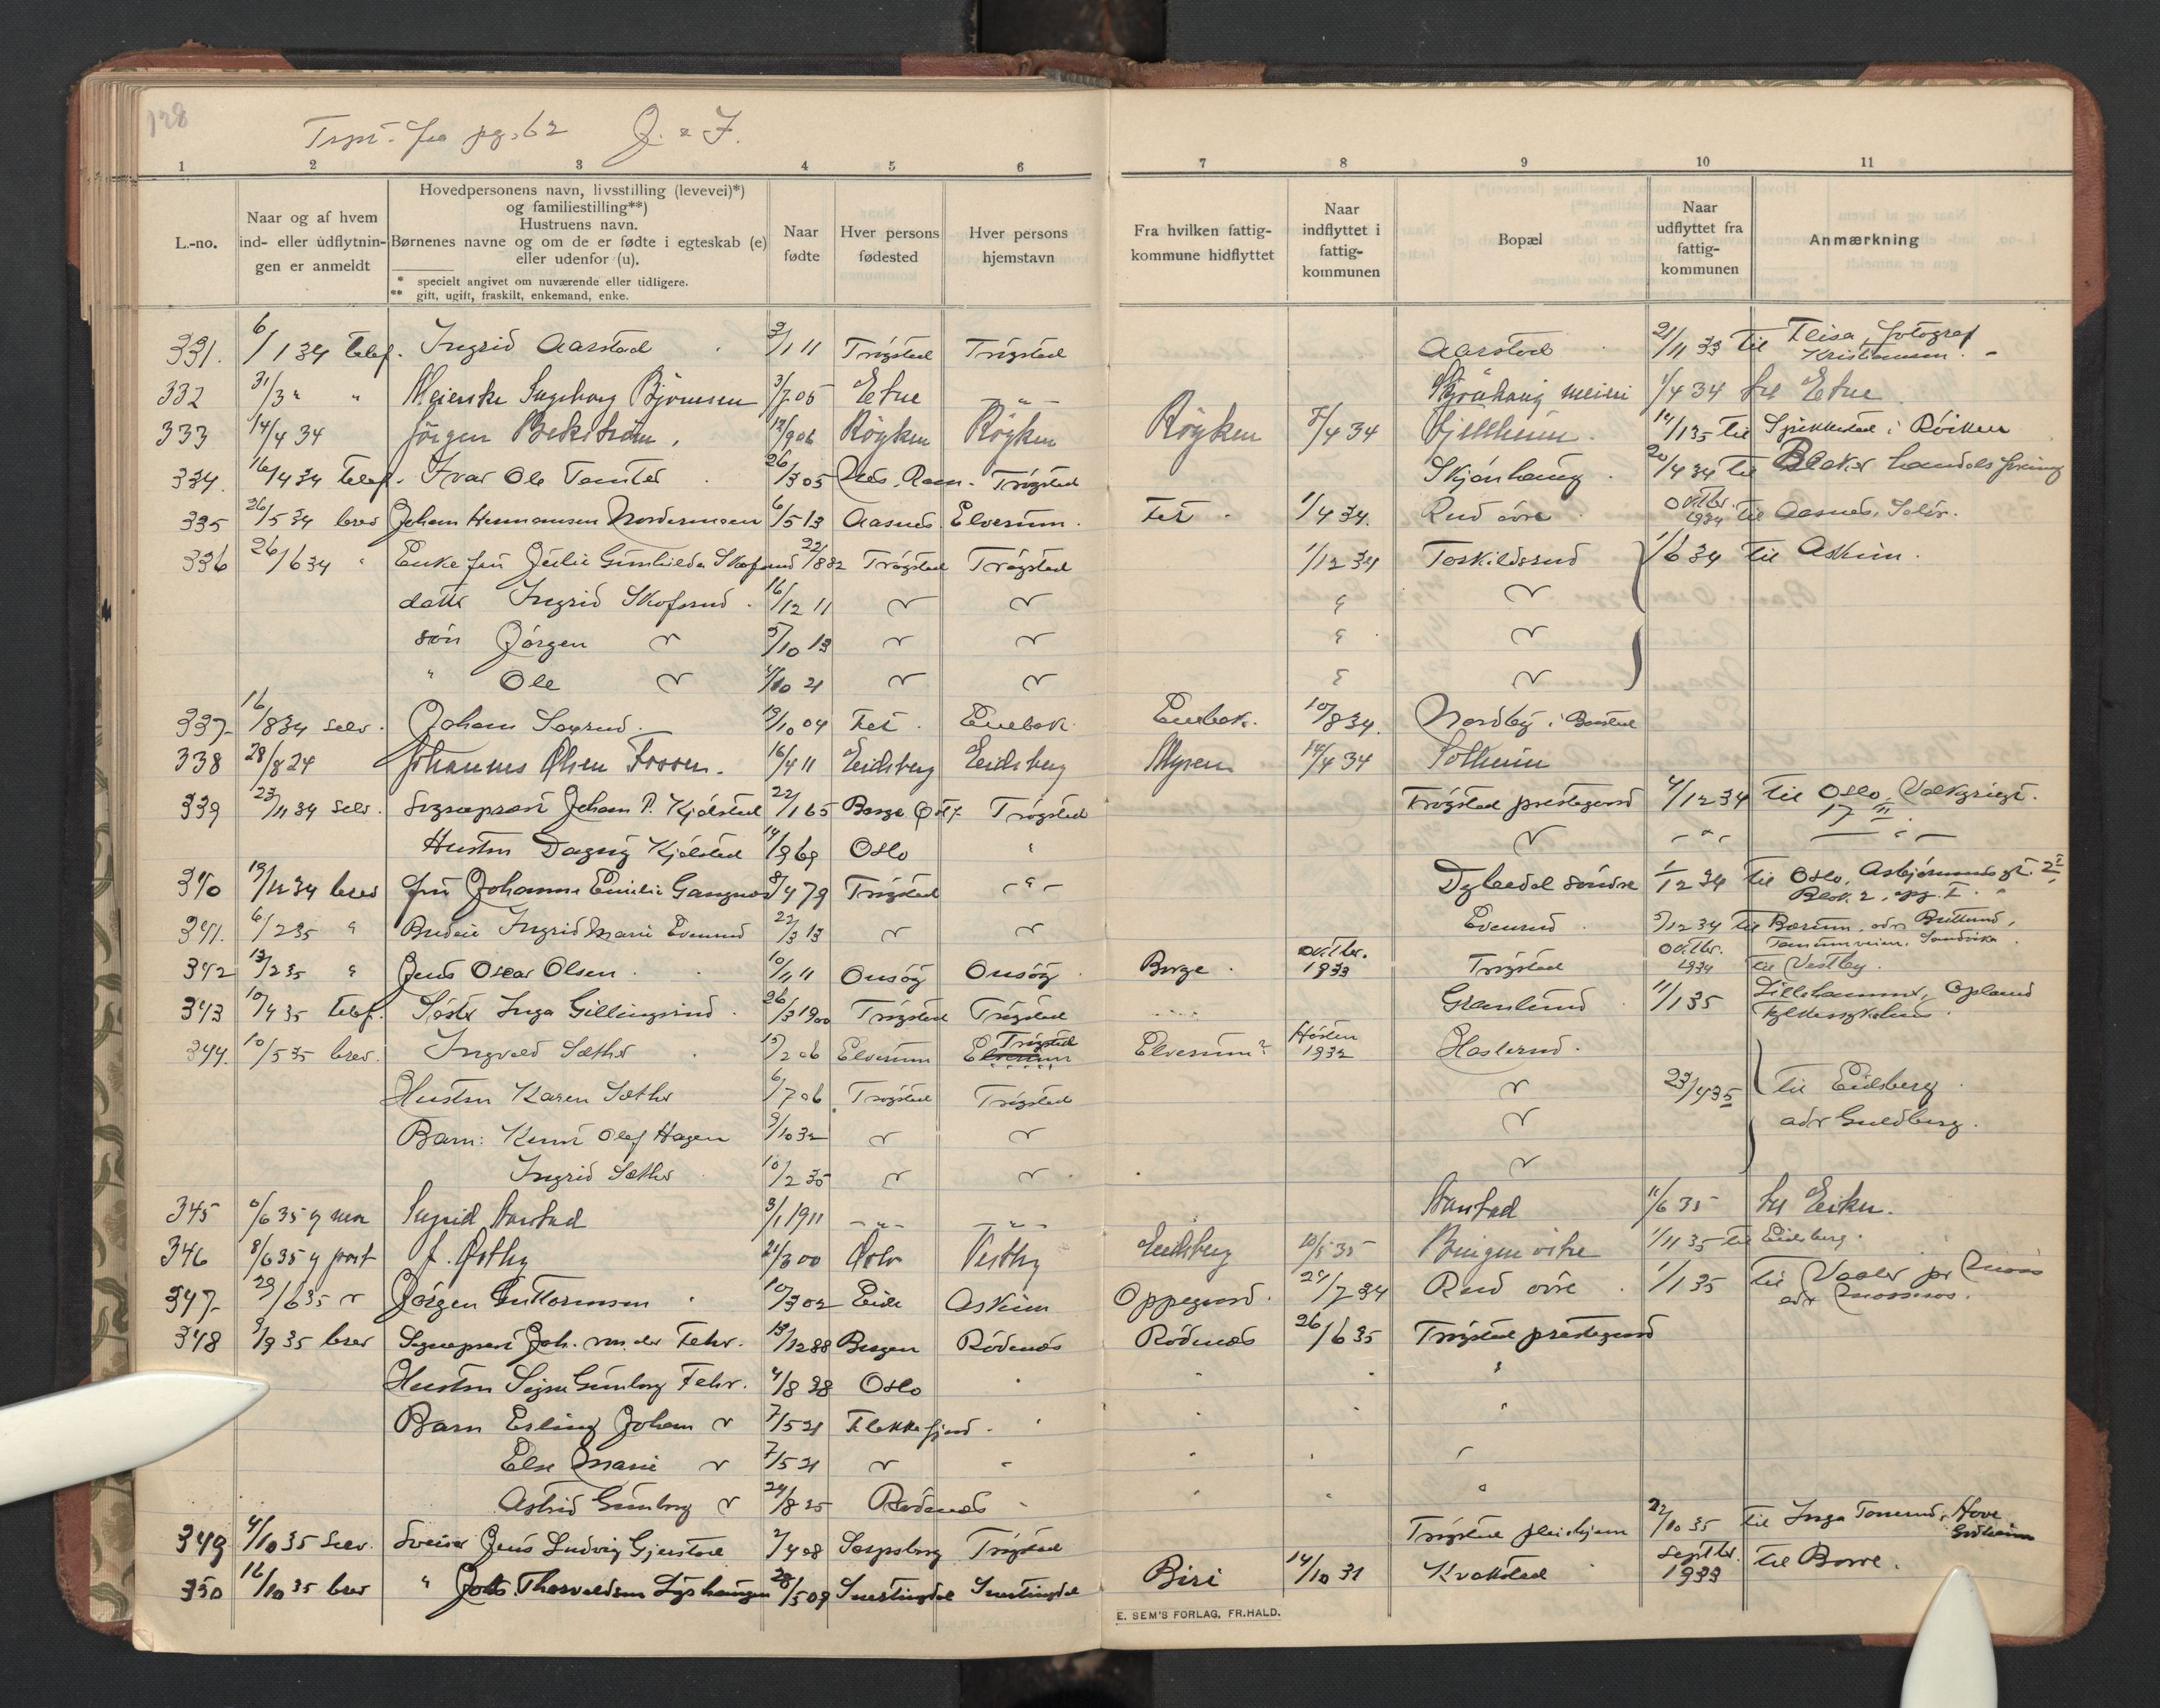 128
fra pg. 62 J. & I.
1 2 3 4 5 6 7 8 9 10 11
L.-no.
Naar og af hvem
ind- eller udflytnin-
gen er anmeldt
Hovedpersonens navn, livsstilling (levevei)*)
og familiestilling**)
Hustruens navn.
Børnenes navne og om de er fødte i egteskab (e)
eller udenfor (u).
* specielt angivet om nuværende eller tidligere.
** gift, ugift, fraskilt, enkemand, enke.
Naar
fødte
Hver persons
fødested
Hver persons
hjemstavn
Fra hvilken fattig-
kommune hidflyttet
Naar
indflyttet i
fattig-
kommunen
Bopæl
Naar
udflyttet fra
fattig-
kommunen
Anmærkning
331. 6/1 34 telef. Ingrid Aarstad 3/1 11 Trøgstad Trøgstad Aarstad 21/11 33 til Flisa, fotograf Kristiansen.
332 31/3 " " Meierske Ingeborg Bjørnsen 3/7 05 Etne — " — Skjønhaug meieri 1/4 34 til Etne
333 14/4 34 Jørgen Bekstrøm. 12/9 06 Røyken Røyken Røyken 5/4 34 Fjellheim 14/1 35 til Spikkestad i Røiken
334. 16/4 34 telef. Ivar Ole Tomter 26/3 05 Nes, Rom. Trøgstad Skjønhaug 20/4 34 til Blaker handelsforening
335 26/5 34 brev Johan Hermansen Nordermoen 6/5 13 Aasnes Elverum. Fet 1/4 34. Rud øvre Oktbr. 1934 til Aasnes, Solør.
336 26/6 34 " Enkefru Julie Gunhilda Skofsrud 22/1 882 Trøgstad Trøgstad 1/12 31 Toskildsrud 1/6 34 til Askim.
dattr Ingrid Skofsrud. 16/12 11 " " " "
søn Jørgen " 5/10 13 " " " "
" Ole " 4/10 21 " " " "
337. 16/8 34 selv. Johan Sagrud. 13/10 04 Fet Enebak. Enebak. 10/8 34. Nordby i Baastad
338 28/8 24 Johannes Olsen Fossen. 16/4 11 Eidsberg Eidsberg Mysen 14/4 34 Solheim
339 23/11 34 selv. Sogneprest Johan P. Kjølstad 22/1 65 Borge Østf. Trøgstad Trøgstad prestegaard 4/12 34 til Oslo, Valkyriegt. 17 II
Hustru Dagny Kjølstad 14/9 69 Oslo " " — " — — " —
340 13/12 34 brev fru Johanne Emilie Gangnæs 8/4 79 Trøgstad — " — Dybedal søndre 1/12 34 til Oslo, Asbjørnsensgt. 2 I, Blok 2, opg. I.
341. 6/2 35 " Budeie Ingrid Marie Evenrud 22/3 13 " " Evenrud 5/12 34 til Bærum, adr. Tanumveien, Sandvika
342 13/2 35 " Jens Oscar Olsen. 10/1 11 Onsøy Onsøy Borge. Oktbr. 1933 Trøgstad Oktbr. 1934 til Vestby.
343 10/4 35 telef. Søster Inga Gillingsrud 26/3 1900 Trøgstad Trøgstad Granlund 11/1 35 Lillehammer, Opland fylkessykehus.
344. 10/5 35 brev. Ingvald Sæther 15/2 06 Elverum Elverum Trøgstad Elverum? Høsten 1932 Haslerud.
Hustru Karen Sæther 6/7 06 Trøgstad Trøgstad " 23/4 35 til Eidsberg
Barn: Knut Olaf Hagen 3/10 32 " " " adr Guldberg.
Ingrid Sæther 10/2 35 " " "
345 6/6 35 Ingrid Aarstad 3/1 1911 — " — — " — Aarstad 11/6 35 til Eiker.
346 8/6 35 J. Østby 21/3 00 Oslo Vestby Eidsberg 20/5 35 Bingen østre 1/11 35 til Eidsberg.
347. 29/6 35 " Jørgen Guttormsen 10/3 02 Eide Askim Oppegaard. 24/7 34 Rud øvre 1/1 35 til Vaaler pr Moss adr Mosseros.
348 3/9 35 brev Sogneprest Joh. von der Fehr. 13/12 88 Bergen Rødenæs Rødenæs 26/6 35 Trøgstad prestegaard
Hustru Signe Gunborg Fehr. 4/8 98 Oslo " " " "
Barn Erling Johan " 7/5 21 Flekkefjord. " " "
Else Marie " 7/5 21 " " " " "
Astrid Gunborg " 24/8 25 Rødenæs " " " "
349 4/10 35 selv. Sveiser Jens Ludvig Gjerstad 2/4 08 Sarpsborg Trøgstad Trøgstad pleiehjem 22/10 35 til Inga Tonerud, Hove
350 16/10 35 brev " Thorvaldsen Lyshaugen 28/5 09 Snertingdal Snertingdal Biri 14/10 31 Kvakstad Septbr. 1933 til Borre.
E. SEM'S FORLAG, FR.HALD.